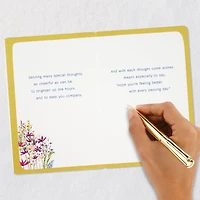 Sending many special thoughts,
as cheerful as can be
to brighten up the hours
and to keep you company.
And with each thought come wishes
meant especially to say,
"Hope you're feeling better
with every passing day."